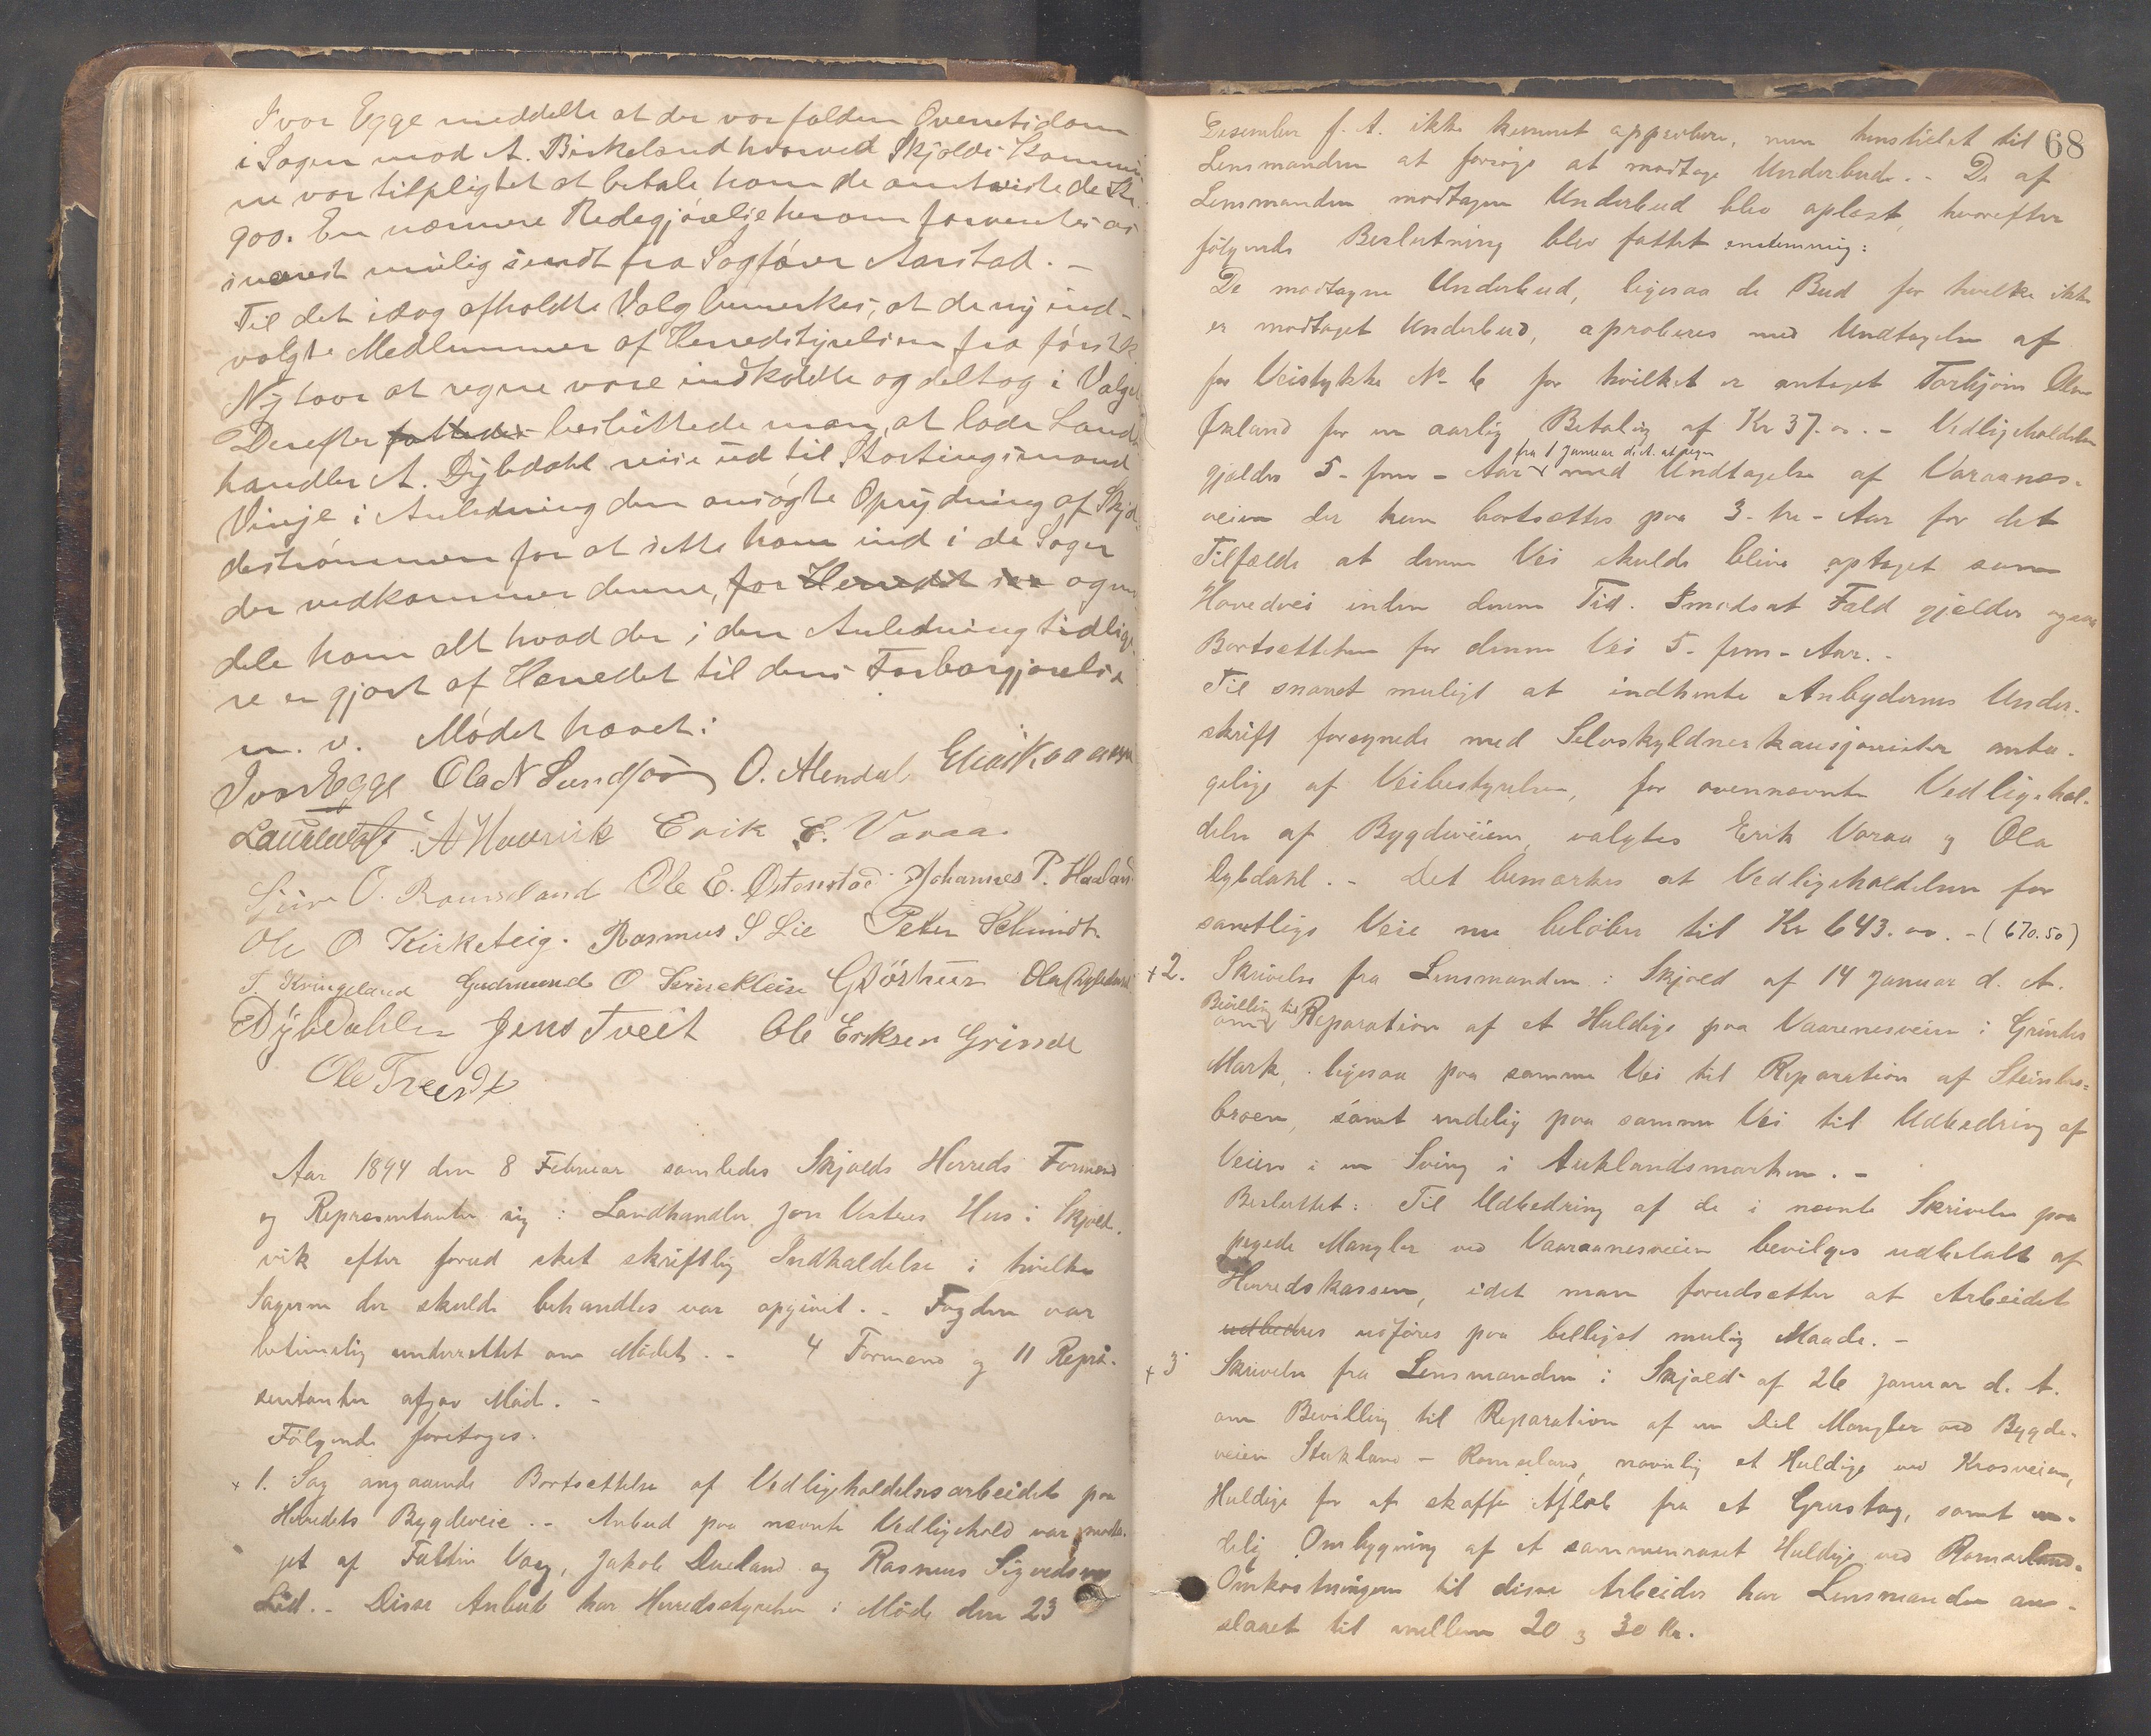 Ivar Egge meddelte at der var falden Overretsdom
i Sagen mod A. Birkeland hvorved Skjolds Kommu-
ne var tilpligtet at betale ham de omtvistede Kr.
900. En nærmere Redegjørelse herom forventes os
snarest mulig sendt fra Sagfører Aarstad. –
Til det idag afholdte Valg bemerkes, at de ny ind-
valgte Medlemmer af Herredstyrelsen fra førstk.
Nytaar at regne vare indkaldte og deltog i Valget
Derefter fattedes besluttede man, at lade Land-
handler A. Dybdahl reise ud til Stortingsmand
Vinje i Anledning den ansøgte Oprydning af Skjol-
destrømmen for at sette ham ind i de Sager
der vedkommer denne, for Herredet saa og med-
dele ham alt hvad der i den Anledning tidlige-
re er gjort af Herredet til dens Farbargjørelse
m. v. Mødet hævet:
Ivar Egge Ola N Sundfør O. Alendal Elias
A Hovrick Erik E. Varaa.
O. Ramsland Ole E. Østenstad Johannes P. Haaland
Ole O Kirketeig. Rasmus S Lie Peter Schmidt.
T. Kringeland Gudmund O G Dørheim Ola Dybdahl
A Dybdahl Jens Tveit Ole Eriksen Grinde
Ole Tveit
Aar 1894 den 8 Februar samledes Skjolds Herreds Formænd
og Repræsentanter sig i Landhandler Jon Vestres Hus i Skjold-
vik efter forud sket skriftlig Indkaldelse i hvilken
Sagerne der skulde behandles var opgivet. – Fogden var
betimelig underrettet om Mødet. – 4 Formænd og 11 Repræ-
sentanter afgav Mød. –
Følgende foretoges:
+ 1. Sag angaaende Bortsettelse af Vedligeholdelsesarbeidet paa
Herredets Bygdeveie. – Anbud paa nævnte Vedligehold var modta-
get af Faltin Vaag, Jakob Dueland og Rasmus Sigvedsen
Lid. – Disse Anbud har Herredsstyrelsen i Møde den 23
68
Desember f. A. ikke kunnet approbere, men henstillet til
Lensmanden at forsøge at modtage Underbud. – De af
Lensmanden modtagne Underbud blev oplæst, hvorefter
følgende Beslutning blev fattet enstemmig:
De modtagne Underbud, ligesaa de Bud for hvilke ikke
er modtaget Underbud, aproberes med Undtagelse af
for Veistykke No 6 for hvilket er antaget Torbjørn Olsen
Øxland for en aarlig Betaling af Kr 37.00. – Vedligeholdelsen
fra 1 Januar d. A. at regne
gjælder 5 - fem - Aar med Undtagelse af Varaanes-
veien der kun bortsættes paa 3 - tre - Aar for det
Tilfælde at denne Vei skulde blive optaget som
Hovedvei inden denne Tid. I modsat Fald gjælder ogsaa
Bortsættelsen for denne Vei 5 - fem - Aar. –
Til snarest muligt at indhente Anbydernes Under-
skrift forsynede med Selvskyldnerkausjonister anta-
gelige af Veibestyrelsen, for ovennævnte Vedligehol-
delse af Bygdeveiene, valgtes Erik Varaa og Ola
Dybdahl. – Det bemærkes at Vedligeholdelsen for
samtlige Veie nu beløber til Kr 643.00. – (670.50)
+ 2. Skrivelse fra Lensmanden i Skjold af 14 Januar d. A.
Bevilling til
om Reparation af et Huldige paa Vaarenesveien i Grindes
Mark, ligesaa paa samme Vei til Reparation af Steinbro-
broen, samt endelig paa samme Vei til Udbedring af
Veien i en Sving i Auklandsmarken. –
Besluttet: Til Udbedring af de i nævnte Skrivelse paa-
pegede Mangler ved Vaaraanesveien bevilges udbetalt af
Herredskassen, idet man forudsætter at Arbeidet
udbedres udføres paa billigst mulig Maade. –
+ 3 Skrivelse fra Lensmanden i Skjold af 26 Januar d. A.
om Bevilling til Reparation af en Del Mangler ved Bygde-
veien Stakland – Ramsland, navnlig et Huldige ved Krosveien,
Huldige for at skaffe Afløb fra et Grustag, samt en-
delig Ombygning af et sammenraset Huldige ved Ramsland.
Omkostningene til disse Arbeider har Lensmanden an-
slaaet til mellem 20 og 30 Kr.